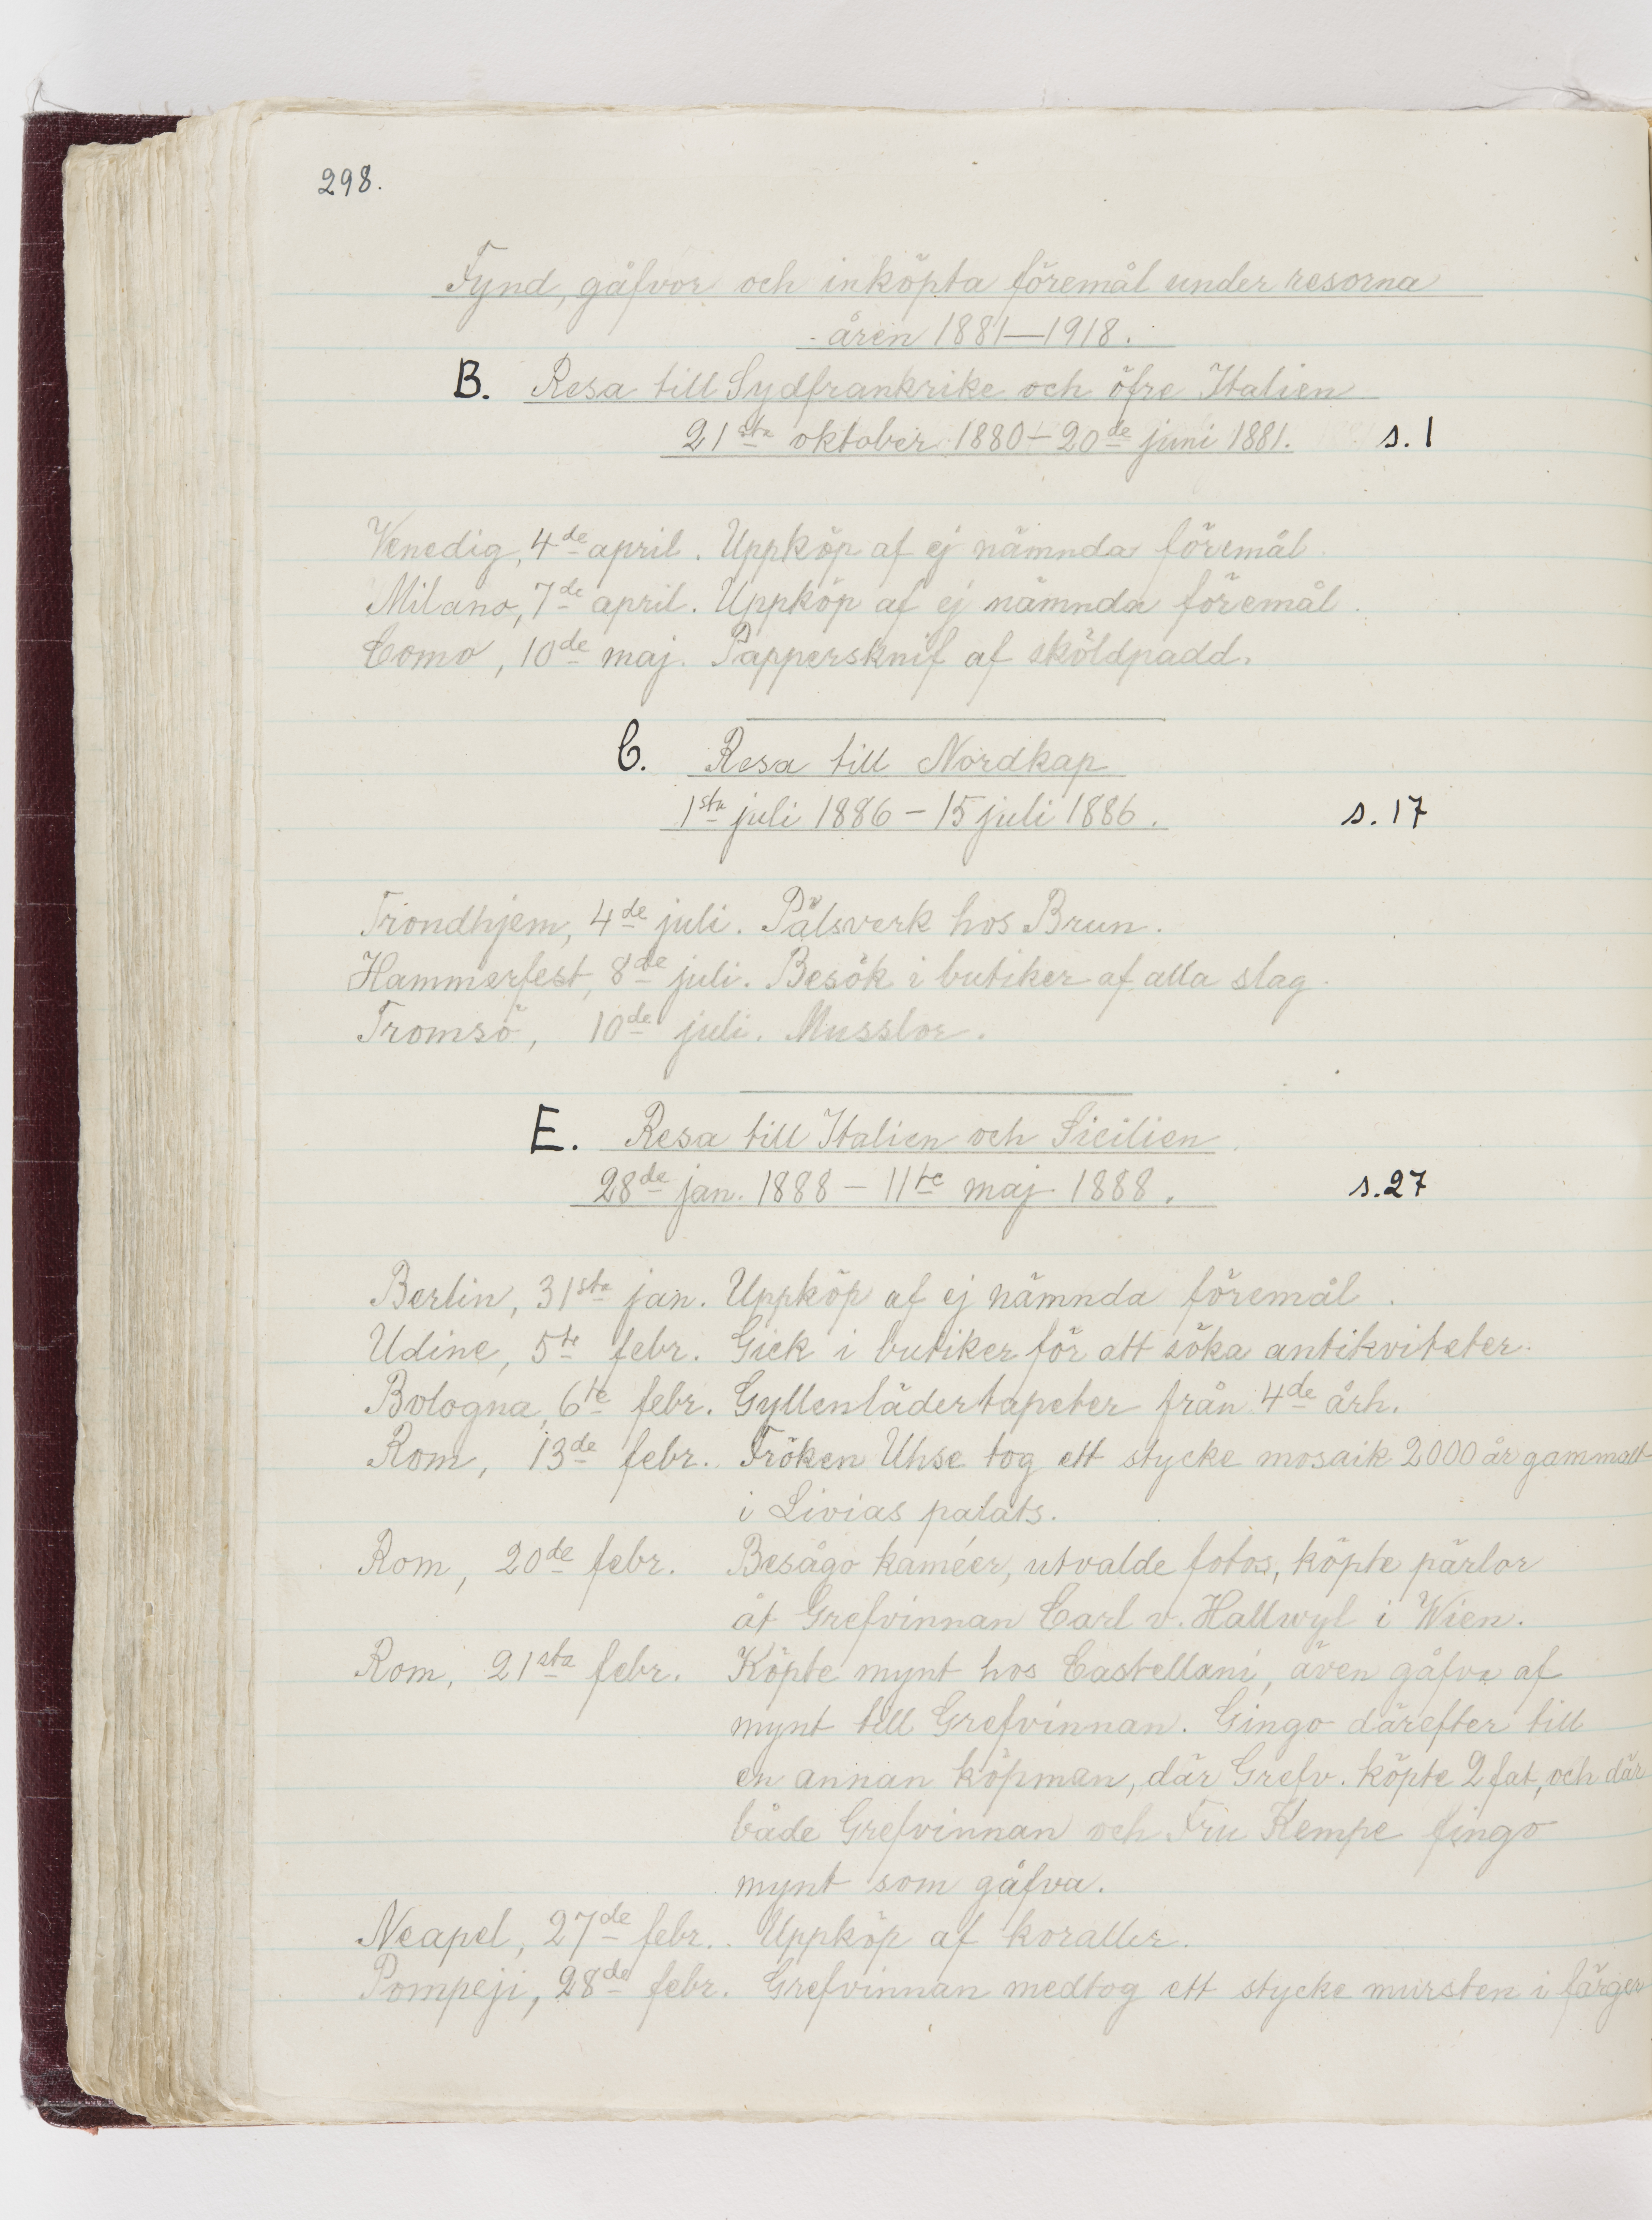 298.
Fynd, gåfvor och inköpta föremål under resorna
åren 1881—1918.
B. Resa till Sydfrankrike och öfre Italien
21sta oktober 1880 – 20de juni 1881. s. 1
Venedig, 4de april. Uppköp af ej nämnda föremål.
Milano, 7de april. Uppköp af ej nämnda föremål.
Como, 10de maj. Pappersknif af sköldpadd.
C. Resa till Nordkap
1sta juli 1886 – 15 juli 1886. s. 17
Trondhjem, 4de juli. Pälsverk hos Brun.
Hammerfest, 8de juli. Besök i butiker af alla slag.
Tromsö, 10de juli. Musslor.
E. Resa till Italien och Sicilien
28de jan. 1888 – 11te maj 1888. s. 27
Berlin, 31sta jan. Uppköp af ej nämnda föremål.
Udine, 5te febr. Gick i butiker för att söka antikviteter.
Bologna, 6te febr. Gyllenlädertapeter från 4de årh.
Rom, 13de febr. Fröken Uhse tog ett stycke mosaik 2000 år gammalt
i Livias palats.
Rom, 20de febr. Besågo kaméer, utvalde fotos, köpte pärlor
åt Grefvinnan Carl v. Hallwyl i Wien.
Rom, 21sta febr. Köpte mynt hos Castellani, även gåfva af
mynt till Grefvinnan. Gingo därefter till
en annan köpman, där Grefv. köpte 2 fat, och där
både Grefvinnan och Fru Kempe fingo
mynt som gåfva.
Neapel, 27de febr. Uppköp af koraller.
Pompeji, 28de febr. Grefvinnan medtog ett stycke mursten i färger